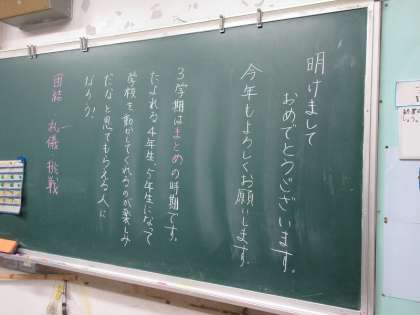 明けまして
おめでとうございます。
今年もよろしくお願いします。
3学期はまとめの時期です。
たよれる4年生、5年生になって
学校を動かしてくれるのが楽しみ
だなと思てもらえる人に
なろう!
団結 礼儀 挑戦